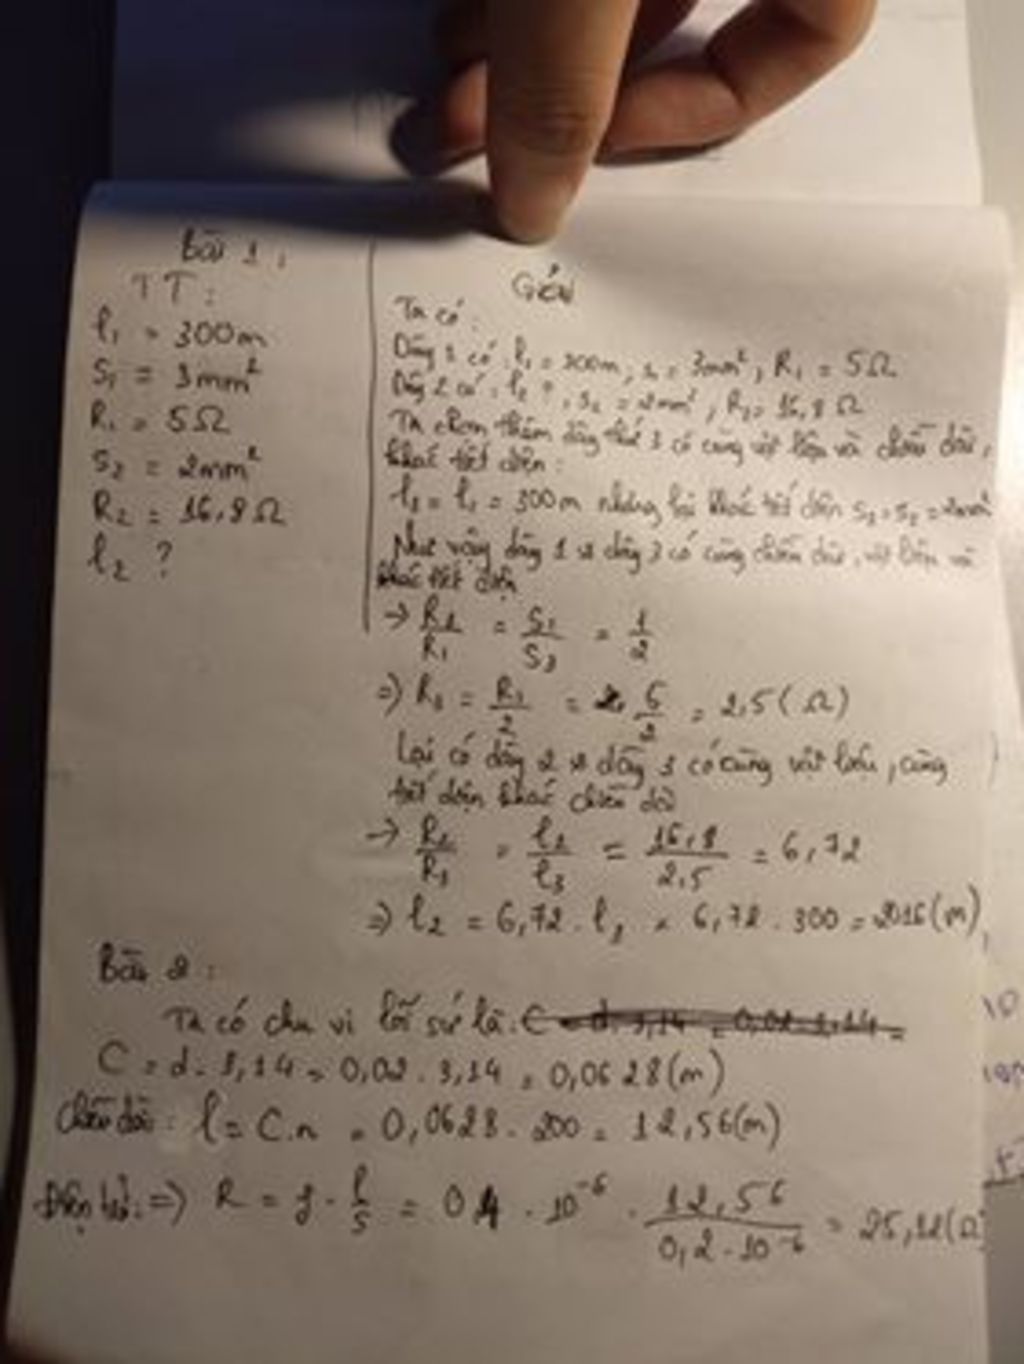 Bài 1:
TT:
l₁ = 300m
S₁ = 3mm²
R₁ = 5Ω
S₂ = 2mm²
R₂ = 16,8Ω
l₂ ?
Giải
Ta có:
Dây 1 có: l₁ = 300m, s₁ = 3mm², R₁ = 5Ω
Dây 2 có: l₂ = ?, s₂ = 2mm², R₂ = 16,8Ω
Ta chọn thêm dây thứ 3 có cùng vật liệu và chiều dài,
khác tiết diện:
l₃ = l₁ = 300m nhưng lại khác tiết diện S₃ = S₂ = 2mm²
Như vậy dây 1 và dây 3 có cùng chiều dài, vật liệu và
khác tiết diện
→ R₃/R₁ = S₁/S₃ = 1/2
=> R₃ = R₁/2 = 5/2 = 2,5(Ω)
Lại có dây 2 và dây 3 có cùng vật liệu, cùng
tiết diện khác chiều dài
→ R₂/R₃ = l₂/l₃ = 16,8/2,5 = 6,72
=> l₂ = 6,72 . l₃ = 6,72 . 300 = 2016(m)
Bài 2:
Ta có chu vi lõi sứ là: C = d. 3,14 = 0,02.3,14 =
C = d. 3,14 = 0,02 . 3,14 = 0,0628(m)
Chiều dài: l = C.n = 0,0628 . 200 = 12,56(m)
Điện trở: => R = ρ . l/s = 0,4 . 10⁻⁶ . 12,56/0,2.10⁻⁶ = 25,12(Ω)